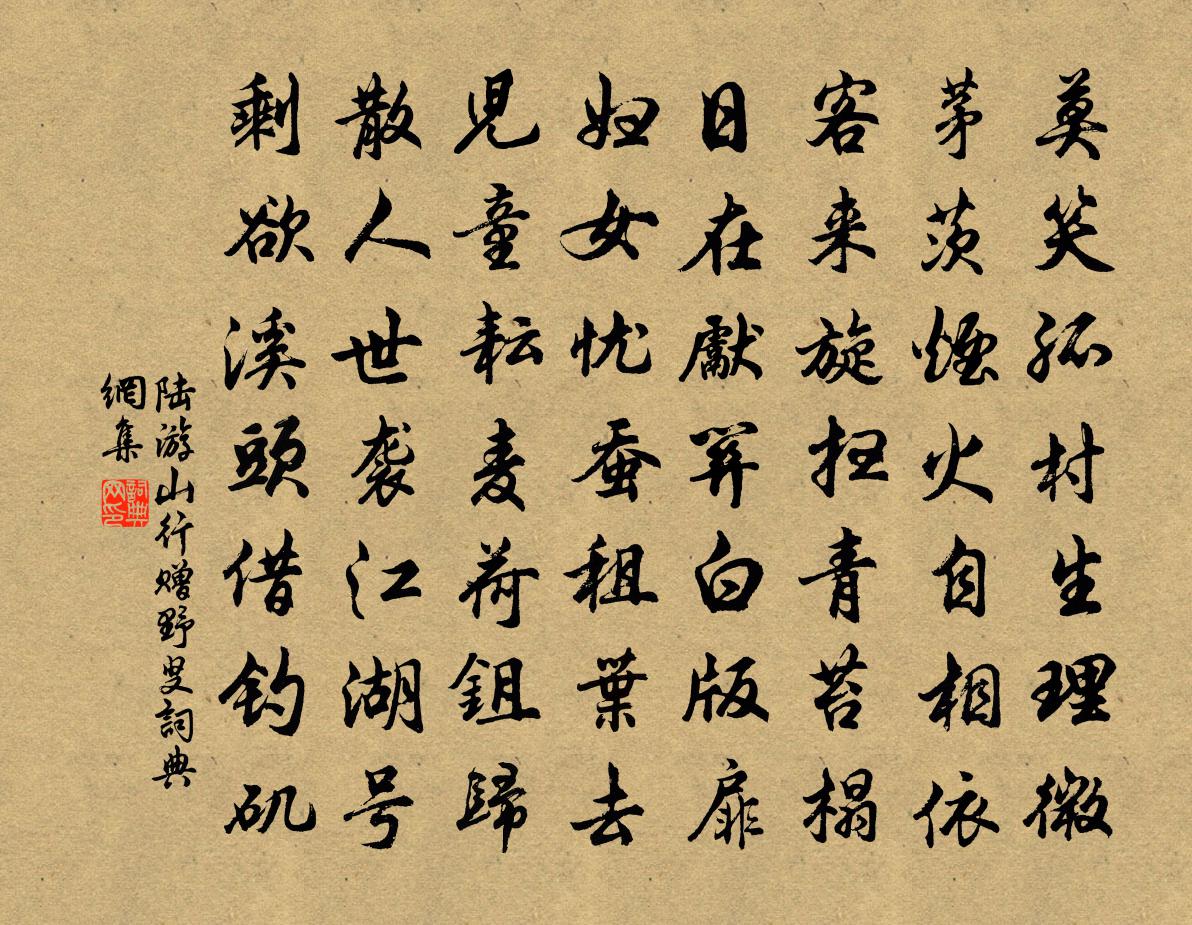 莫笑孤村生理微
茅茨煙火自相依
客来旋扫青苔榻
日在獻笄白版扉
妇女忧蚕租葉去
児童耘麦荷鉏歸
散人世袭江湖号
剩欲溪頭借钓矶
陆游山行赠野叟詞典
網集
詞典
网印